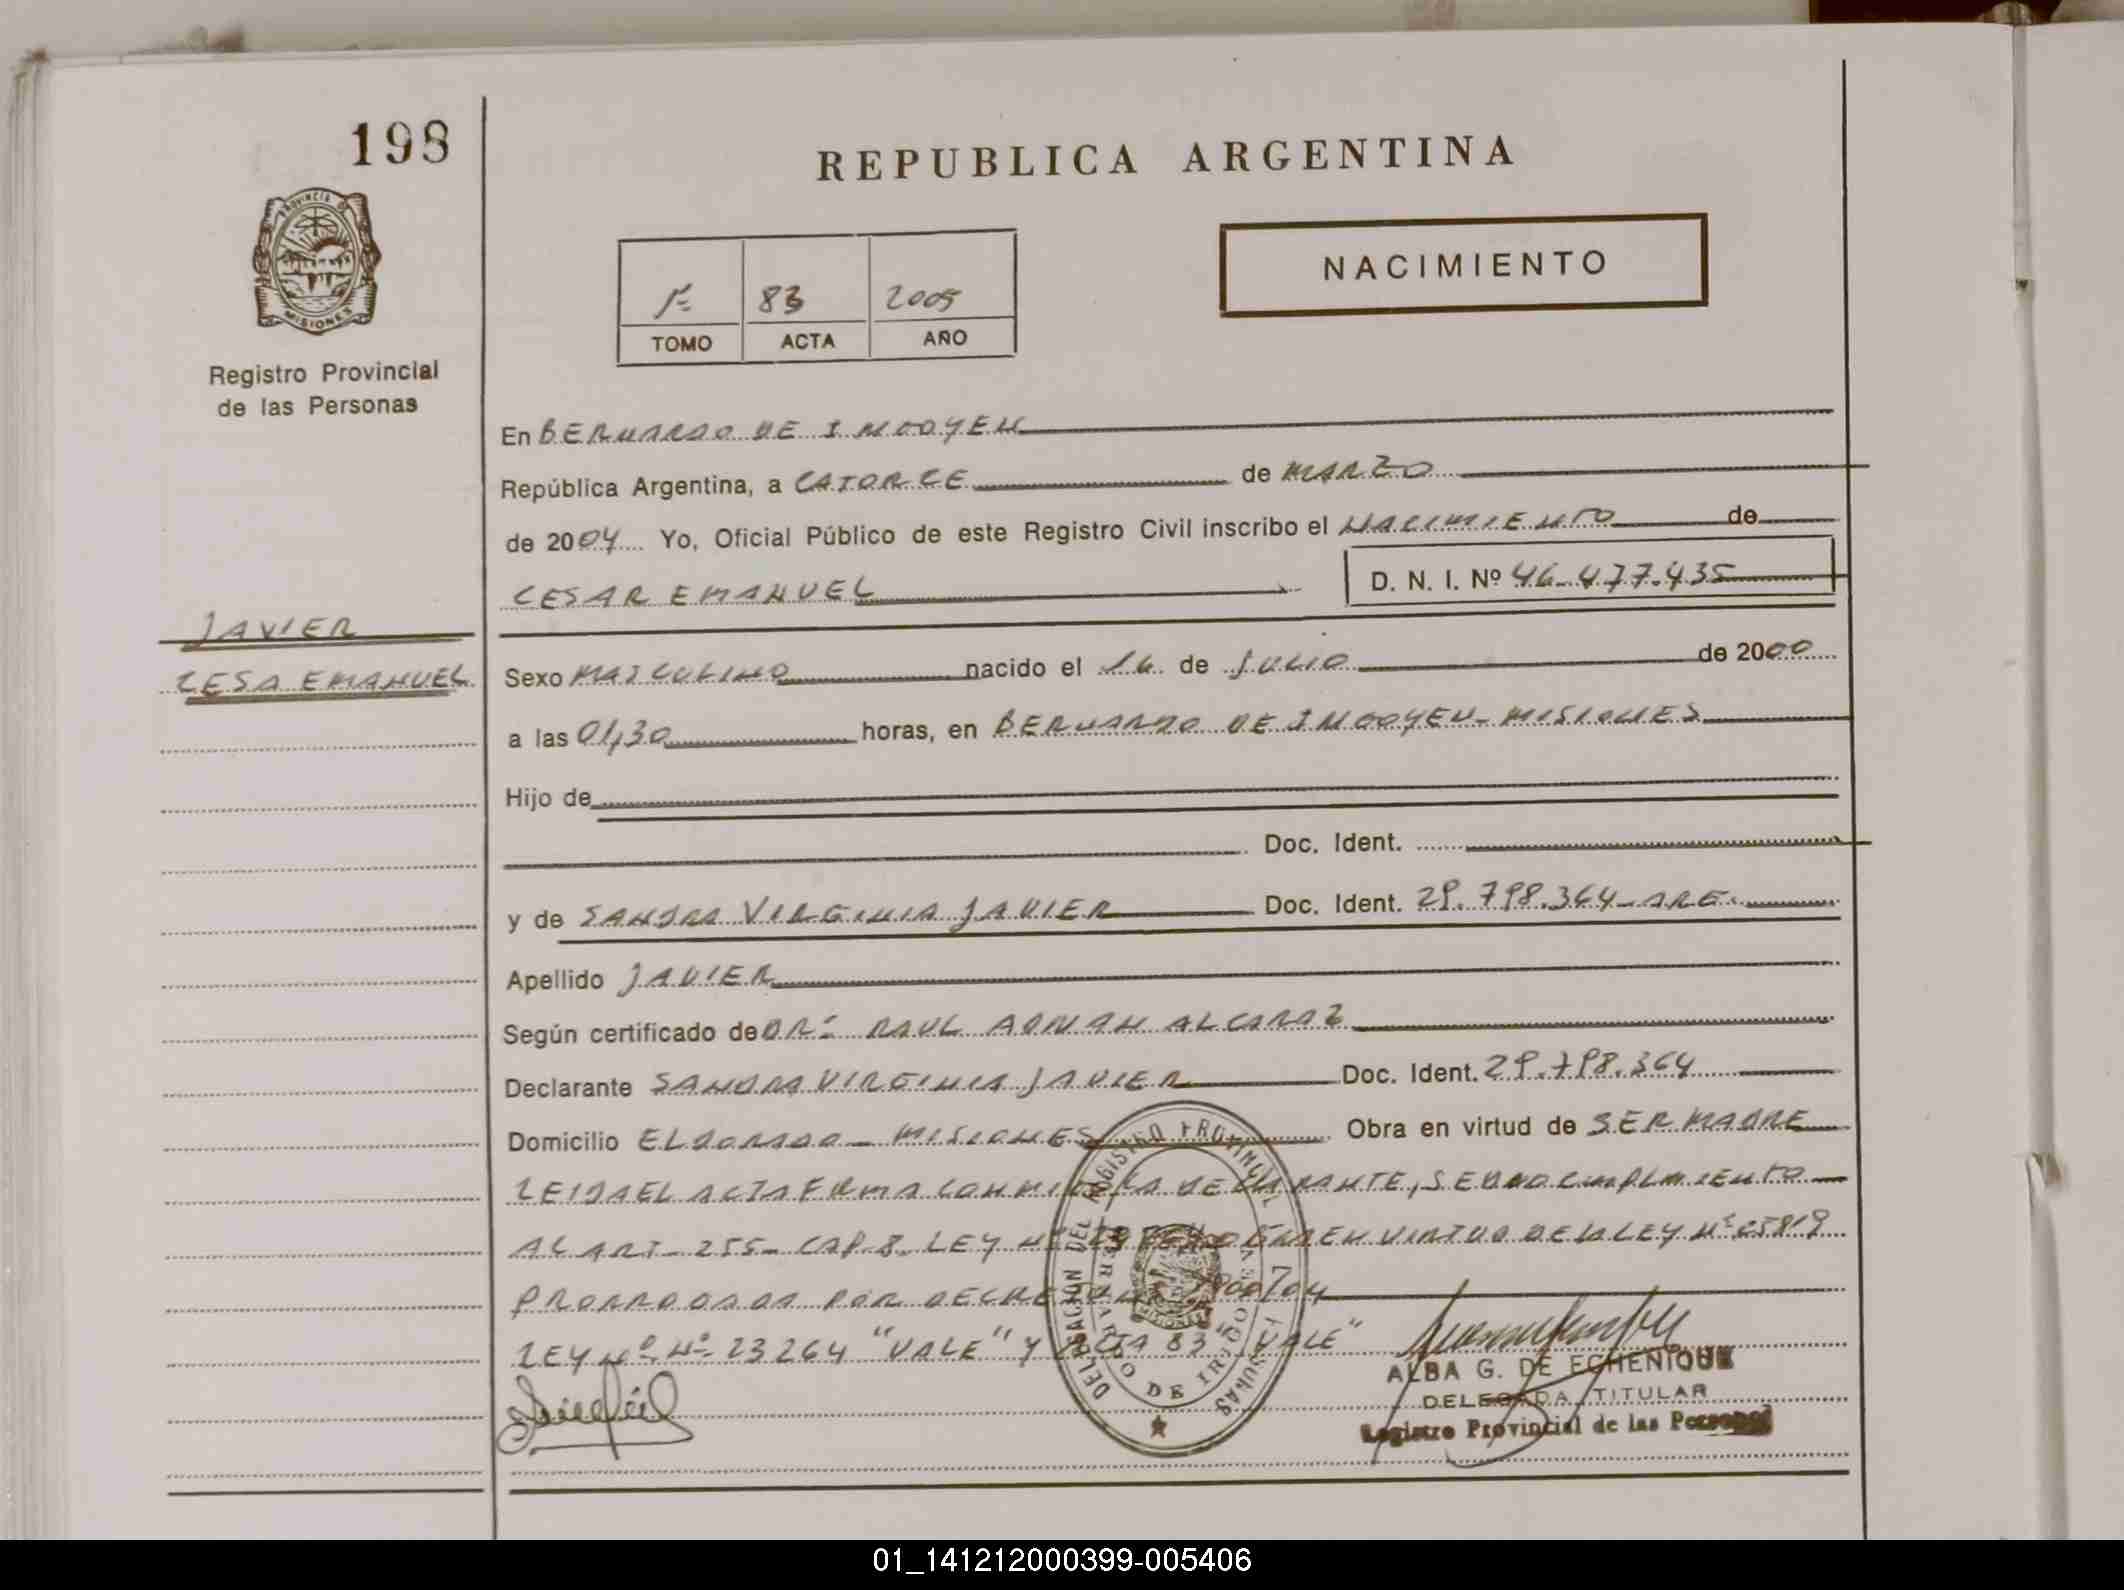 198
REPUBLICA ARGENTINA
PROVINCIA DE
MISIONES
NACIMIENTO
1º 83 2005
TOMO ACTA AÑO
Registro Provincial
de las Personas
En BERNARDO DE IRIGOYEN
República Argentina, a CATORCE de MARZO
de 2004 Yo, Oficial Público de este Registro Civil inscribo el NACIMIENTO de
CESAR EMANUEL D. N. I. Nº 46.477.435
JAVIER
CESA EMANUEL
Sexo MASCULINO nacido el 16 de JULIO de 2000
a las 01,30 horas, en BERNARDO DE IRIGOYEN - MISIONES
Hijo de
Doc. Ident.
y de SANDRA VIRGINIA JAVIER Doc. Ident. 29.798.364 - ARG.
Apellido JAVIER
Según certificado de DR. RAUL ADRIAN ALCARAZ
Declarante SANDRA VIRGINIA JAVIER Doc. Ident. 29.798.364
Domicilio ELDORADO - MISIONES Obra en virtud de SER MADRE
LEIDA EL ACTA FIRMA CONMIGO LA DECLARANTE, SE DIO CUMPLIMIENTO
AL ART. 255 - CAP. 8. LEY EN VIRTUD DE LA LEY Nº 25819
PRORROGADA POR DECRETO /04
LEY Nº Nº 23264 "VALE" Y ACTA 83 "VALE"
ALBA G. DE ECHENIQUE
DELEGADA TITULAR
Registro Provincial de las Personas
01_141212000399-005406